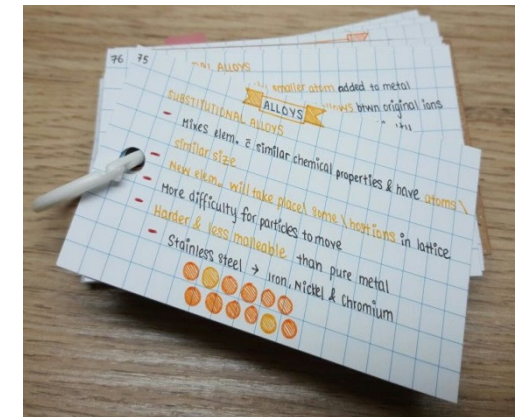 76 75
ALLOYS
smaller atom added to metal
btwn original ions
ALLOYS
SUBSTITUTIONAL ALLOYS
- Mixes elem. c̄ similar chemical properties & have atoms \
similar size
- New elem. will take place \ some \ ions in lattice
- More difficulty for particles to move
- Harder & less malleable than pure metal
- Stainless steel → Iron, Nickel & Chromium